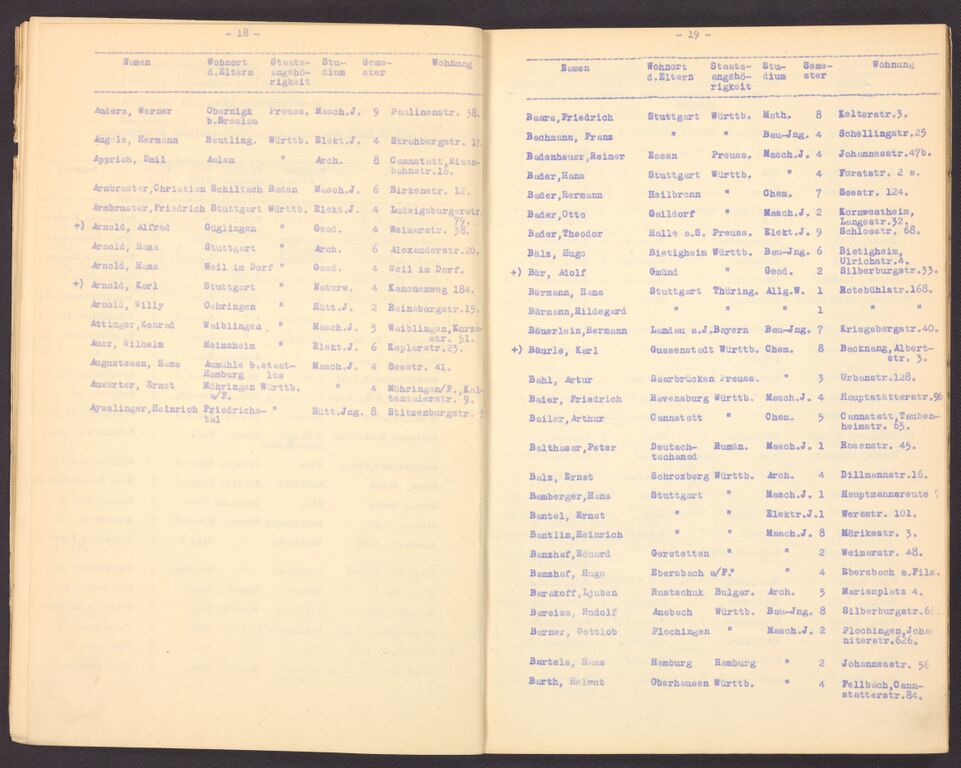 - 18 -
Namen Wohnort d.Eltern Staats-angehö-rigkeit Stu-dium Seme-ster Wohnung
Anders, Werner Obernigk Preuss. Masch.J. 9 Paulinenstr. 38.
b.Breslau
Angele, Hermann Reutling. Württb. Elekt.J. 4 Strohbergstr. 17
Apprich, Emil Aalen " Arch. 8 Cannstatt,Eisen-
bahnstr.16.
Armbruster,Christian Schiltach Baden Masch.J. 6 Birkenstr. 12.
Armbruster,Friedrich Stuttgart Württb. Elekt.J. 4 Ludwigsburgerstr.
79.
+) Arnold, Alfred Güglingen " Geod. 4 Weimarstr. 38.
Arnold, Hans Stuttgart " Arch. 6 Alexanderstr.20.
Arnold, Hans Weil im Dorf " Geod. 4 Weil im Dorf.
+) Arnold, Karl Stuttgart " Naturw. 4 Kanonenweg 184.
Arnold, Willy Oehringen " Hütt.J. 2 Reinsburgstr.15.
Attinger,Konrad Waiblingen " Masch.J. 5 Waiblingen,Kurze-
str. 51.
Auer, Wilhelm Heimsheim " Elekt.J. 6 Keplerstr.23.
Augustesen, Hans Aumühle b. staat- Masch.J. 4 Seestr. 41.
Hamburg los
Auwärter, Ernst Möhringen Württb. " 4 Möhringen/F.,Kal-
a/F. tentalerstr. 9.
Aysslinger,Heinrich Friedrichs- " Hütt.Jng. 8 Stitzenburgstr.
tal
- 19 -
Namen Wohnort d.Eltern Staats-angehö-rigkeit Stu-dium Seme-ster Wohnung
Baara,Friedrich Stuttgart Württb. Math. 8 Kelterstr.3.
Bachmann, Franz " " Bau-Jng. 4 Schellingstr.25
Badenheuer,Reiner Essen Preuss. Masch.J. 4 Johannesstr.47b.
Bader,Hans Stuttgart Württb. " 4 Forststr. 2 a.
Bader,Hermann Heilbronn " Chem. 7 Seestr. 124.
Bader,Otto Gaildorf " Masch.J. 2 Kornwestheim,
Langestr.32.
Bader,Theodor Halle a.S. Preuss. Elekt.J. 9 Schlosstr. 68.
Bälz, Hugo Bietigheim Württb. Bau-Jng. 6 Bietigheim,
Ulrichstr.4.
+) Bär, Adolf Gmünd " Geod. 2 Silberburgstr.33.
Bärmann, Hans Stuttgart Thüring. Allg.W. 1 Rotebühlstr.168.
Bärmann,Hildegard " " " 1 " "
Bäuerlein,Hermann Landau a.J.Bayern Bau-Jng. 7 Kriegsbergstr.40.
+) Bäurle, Karl Gussenstadt Württb. Chem. 8 Backnang,Albert-
str. 3.
Bahl, Artur Saarbrücken Preuss. " 3 Urbanstr.128.
Baier, Friedrich Ravensburg Württb. Masch.J. 4 Hauptstätterstr.96
Bailer,Arthur Cannstatt " Chem. 5 Cannstatt,Tauben-
heimstr. 65.
Balthasar,Peter Deutsch- Rumän. Masch.J. 1 Rosenstr. 45.
tschanad
Balz, Ernst Schrozberg Württb. Arch. 4 Dillmannstr.16.
Bamberger,Hans Stuttgart " Masch.J. 1 Hauptmannsreute
Bantel, Ernst " " Elektr.J.1 Werastr. 101.
Bantlin,Heinrich " " Masch.J. 8 Mörikestr. 3.
Banzhaf,Eduard Gerstetten " " 2 Weimarstr. 48.
Banzhaf, Hugo Ebersbach a/F." " 4 Ebersbach a.Fils.
Barakoff,Ljuben Rustschuk Bulgar. Arch. 5 Marienplatz 4.
Bareiss, Rudolf Ansbach Württb. Bau-Jng. 8 Silberburgstr.
Barner, Gottlob Plochingen " Masch.J. 2 Plochingen,Joha
niterstr.626.
Bartels, Hans Hamburg Hamburg " 2 Johannesstr. 56
Barth, Helmut Oberhausen Württb. " 4 Fellbach,Cann-
statterstr.84.